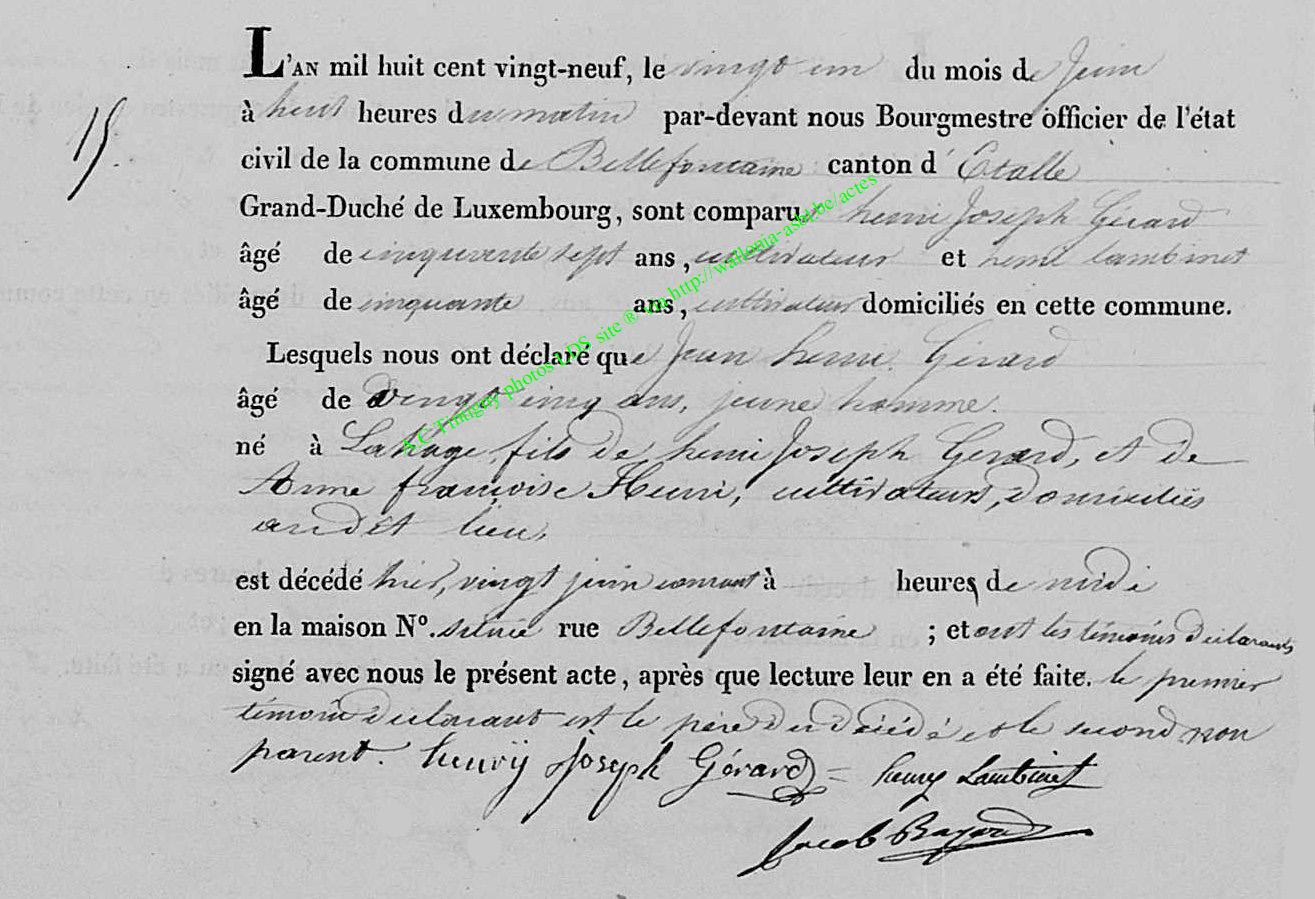 L'AN mil huit cent vingt-neuf, le vingt un du mois de Juin
15.
à huit heures du matin par-devant nous Bourgmestre officier de l'état
civil de la commune de Bellefontaine canton d'Étalle
Grand-Duché de Luxembourg, sont comparus henri Joseph Gerard
âgé de cinquante sept ans, cultivateur et henri lambinet
âgé de cinquante ans, cultivateur domiciliés en cette commune.
Lesquels nous ont déclaré que Jean henri Gérard
âgé de vingt cinq ans, jeune homme.
né à Lahage, fils de henri Joseph Gerard, et de
Anne françoise Henri, cultivateurs, domiciliés
audit lieu,
est décédé hier, vingt juin courant à heures de midi
en la maison Nº. située rue Bellefontaine ; et ont les témoins déclarants
signé avec nous le présent acte, après que lecture leur en a été faite. le premier
témoin déclarant est le père du décédé et le second non
parent. henrÿ Joseph Gérard = henry Lambinet
Jacob Bayard
A.C Tintigny photos LDS site ® via http://wallonia-asbl.be/actes